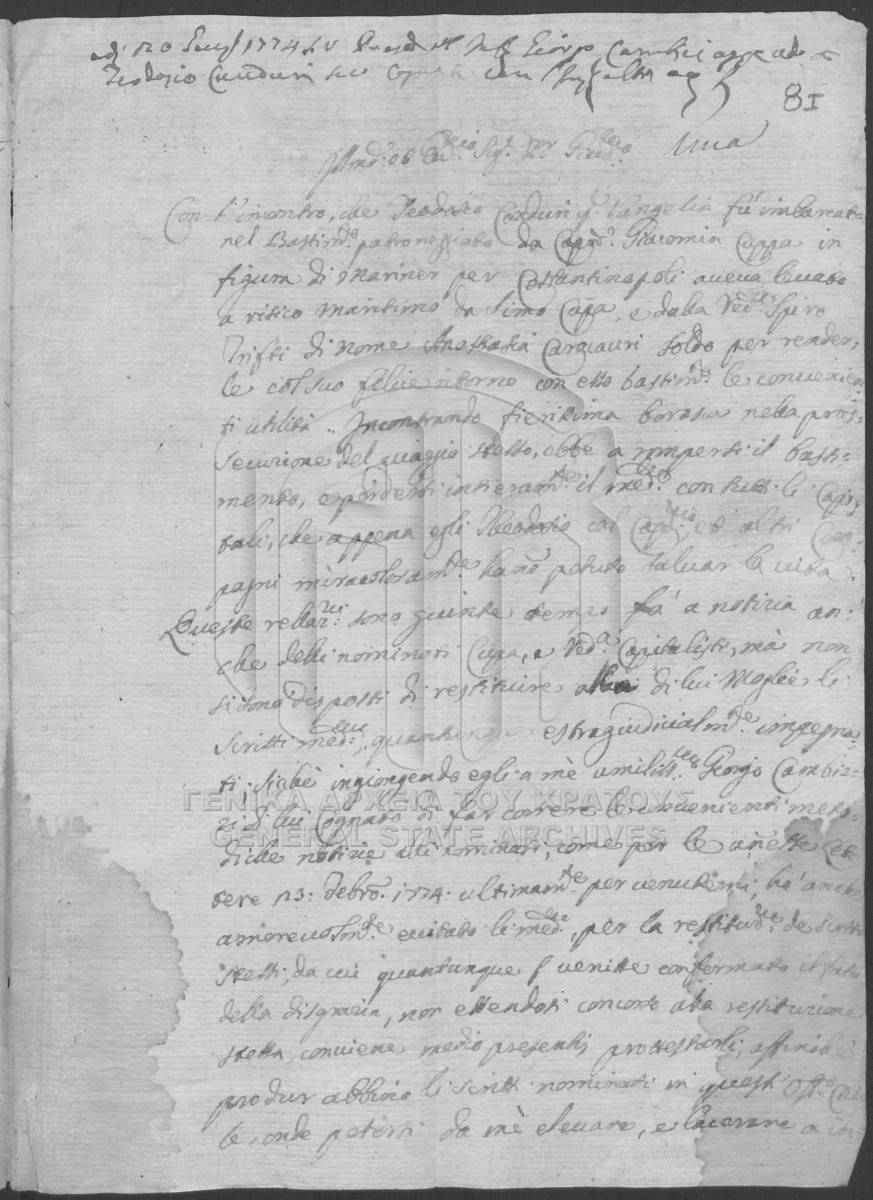 adi 20 1774 Giorgio Cambizi
Teodosio Conduri
81
Una
Con l'incontro, che Teodosio Conduri q. Vangelin fù imbarcato
nel Bastim.to patronoggiato da Cap.n Giacomin Cuppa in
figura di Mariner per Costantinopoli aveva levato
a risico maritimo da Simo Cuppa, e dalla Ved.a Spiro
Trifti di nome Anastasia soldo per render,
le col suo felice ritorno con esso bastim.to le convenien
ti utilità .. Incontrando fierissima borasca nella pros=
secuzione del viaggio stesso, ebbe a rompersi il basti=
mento, e perdersi intieram.te il med.mo con tutti li Capi
tali, che appena egli Theodosio col Cap.io, et altri Com
pagni miracolosam.te hano potuto salvar la vita.
Queste rellaz.ni sono giunte tempo fà a notizia an=
che delli nominati Cupa, e Ved.a Capitalisti, mà non
si sono disposti di restituire alla di lui Moglie li
scritti med.mi, quantunque estragiudicialm.te impegna
ti. Sichè ingiongendo egli a mè umiliss.mo Giorgio Cambiz=
zi di lui Cognato di far correre le convenienti meto=
diche notizie alli nominati, come per le annesse Let
tere 23: Febro. 1774. ultimam.te pervenutemi, hò anche
amorevolm.te ecitato li med.mi, per la restituz.ne de scritti
stessi, da cui quantunque venisse confermato il fatto
della disgrazia, non essendosi concorso alla restituzione
stessa, conviene medio presentis protestarli, affinchè
produr abbino li scritti nominati in quest' Off.o
le, onde potersi da mè elevare, e lacerare a in-
ΓΕΝΙΚΑ ΑΡΧΕΙΑ ΤΟΥ ΚΡΑΤΟΥΣ
GENERAL STATE ARCHIVES